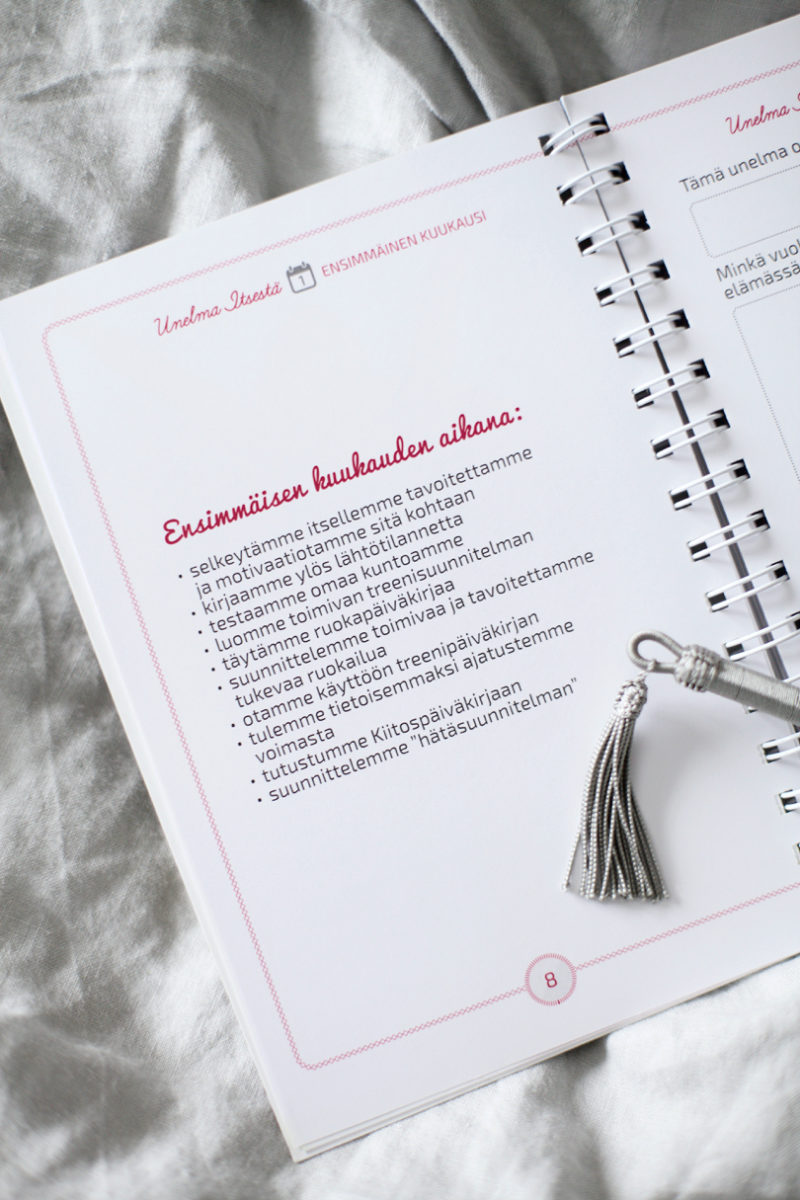 Unelma Itsestä 1 ENSIMMÄINEN KUUKAUSI
Ensimmäisen kuukauden aikana:
• selkeytämme itsellemme tavoitettamme
ja motivaatiotamme sitä kohtaan
• kirjaamme ylös lähtötilannetta
• testaamme omaa kuntoamme
• luomme toimivan treenisuunnitelman
• täytämme ruokapäiväkirjaa
• suunnittelemme toimivaa ja tavoitettamme
tukevaa ruokailua
• otamme käyttöön treenipäiväkirjan
• tulemme tietoisemmaksi ajatustemme
voimasta
• tutustumme Kiitospäiväkirjaan
• suunnittelemme "hätäsuunnitelman"
8
Unelma
Tämä unelma
Minkä
elämässä